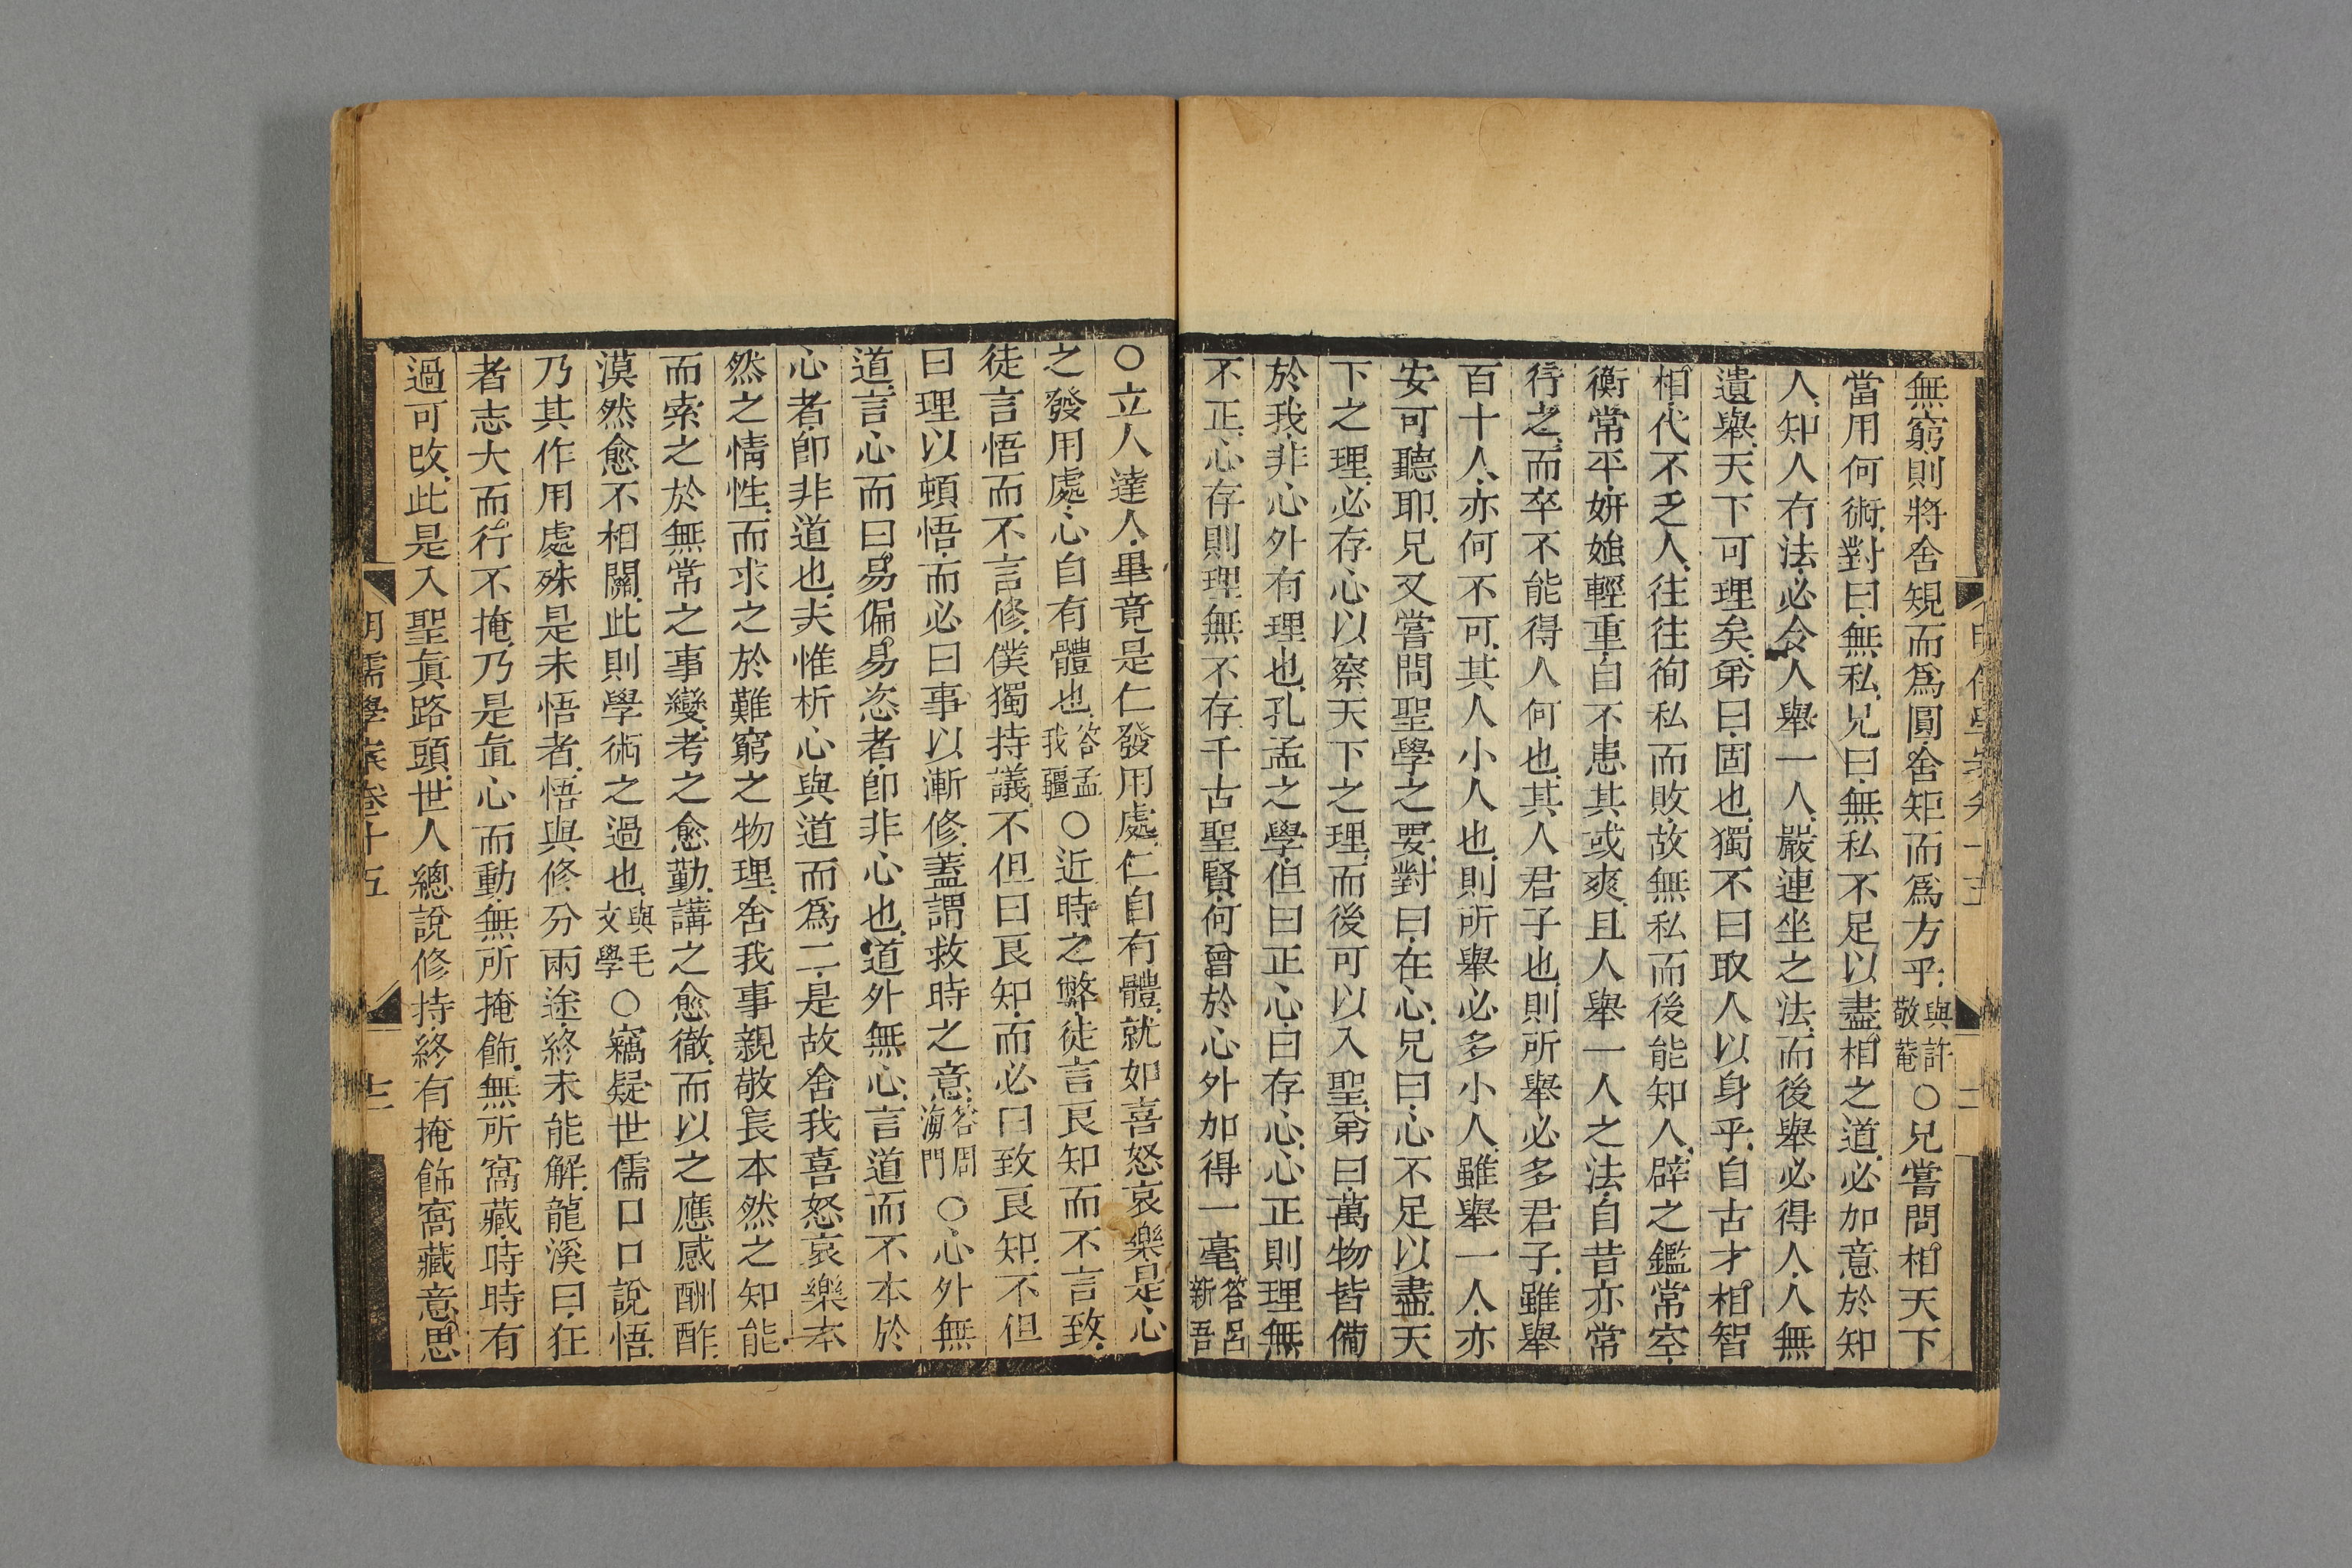 無窮則將舍規而爲圓舍矩而爲方乎與許敬菴○兄嘗問相天下
當用何術對曰無私兄曰無私不足以盡相之道必加意於知
人知人有法必令人舉一人嚴連坐之法而後舉必得人人無
遺舉天下可理矣弟曰固也獨不曰取人以身乎自古才相智
相代不乏人往往徇私而敗故無私而後能知人辟之鑑常空
衡常平妍媸輕重自不患其或爽且人舉一人之法自昔亦常
行之而卒不能得人何也其人君子也則所舉必多君子雖舉
百十人亦何不可其人小人也則所舉必多小人雖舉一人亦
安可聽耶兄又嘗問聖學之要對曰在心兄曰心不足以盡天
下之理必存心以察天下之理而後可以入聖弟曰萬物皆備
於我非心外有理也孔孟之學但曰正心曰存心心正則理無
不正心存則理無不存千古聖賢何曾於心外加得一毫答呂新吾
○立人達人畢竟是仁發用處仁自有體就如喜怒哀樂是心
之發用處心自有體也答孟我疆○近時之弊徒言良知而不言致
徒言悟而不言修僕獨持議不但曰良知而必曰致良知不但
曰理以頓悟而必曰事以漸修蓋謂救時之意答周海門○心外無
道言心而曰易偏易恣者卽非心也道外無心言道而不本於
心者卽非道也夫惟析心與道而爲二是故舍我喜怒哀樂本
然之情性而求之於難窮之物理舍我事親敬長本然之知能
而索之於無常之事變考之愈勤講之愈徹而以之應感酬酢
漠然愈不相關此則學術之過也與毛文學○竊疑世儒口口說悟
乃其作用處殊是未悟者悟與修分兩途終未能解龍溪曰狂
者志大而行不掩乃是直心而動無所掩飾無所窩藏時時有
過可改此是入聖眞路頭世人總說修持終有掩飾窩藏意思
明儒學案卷十五
十二